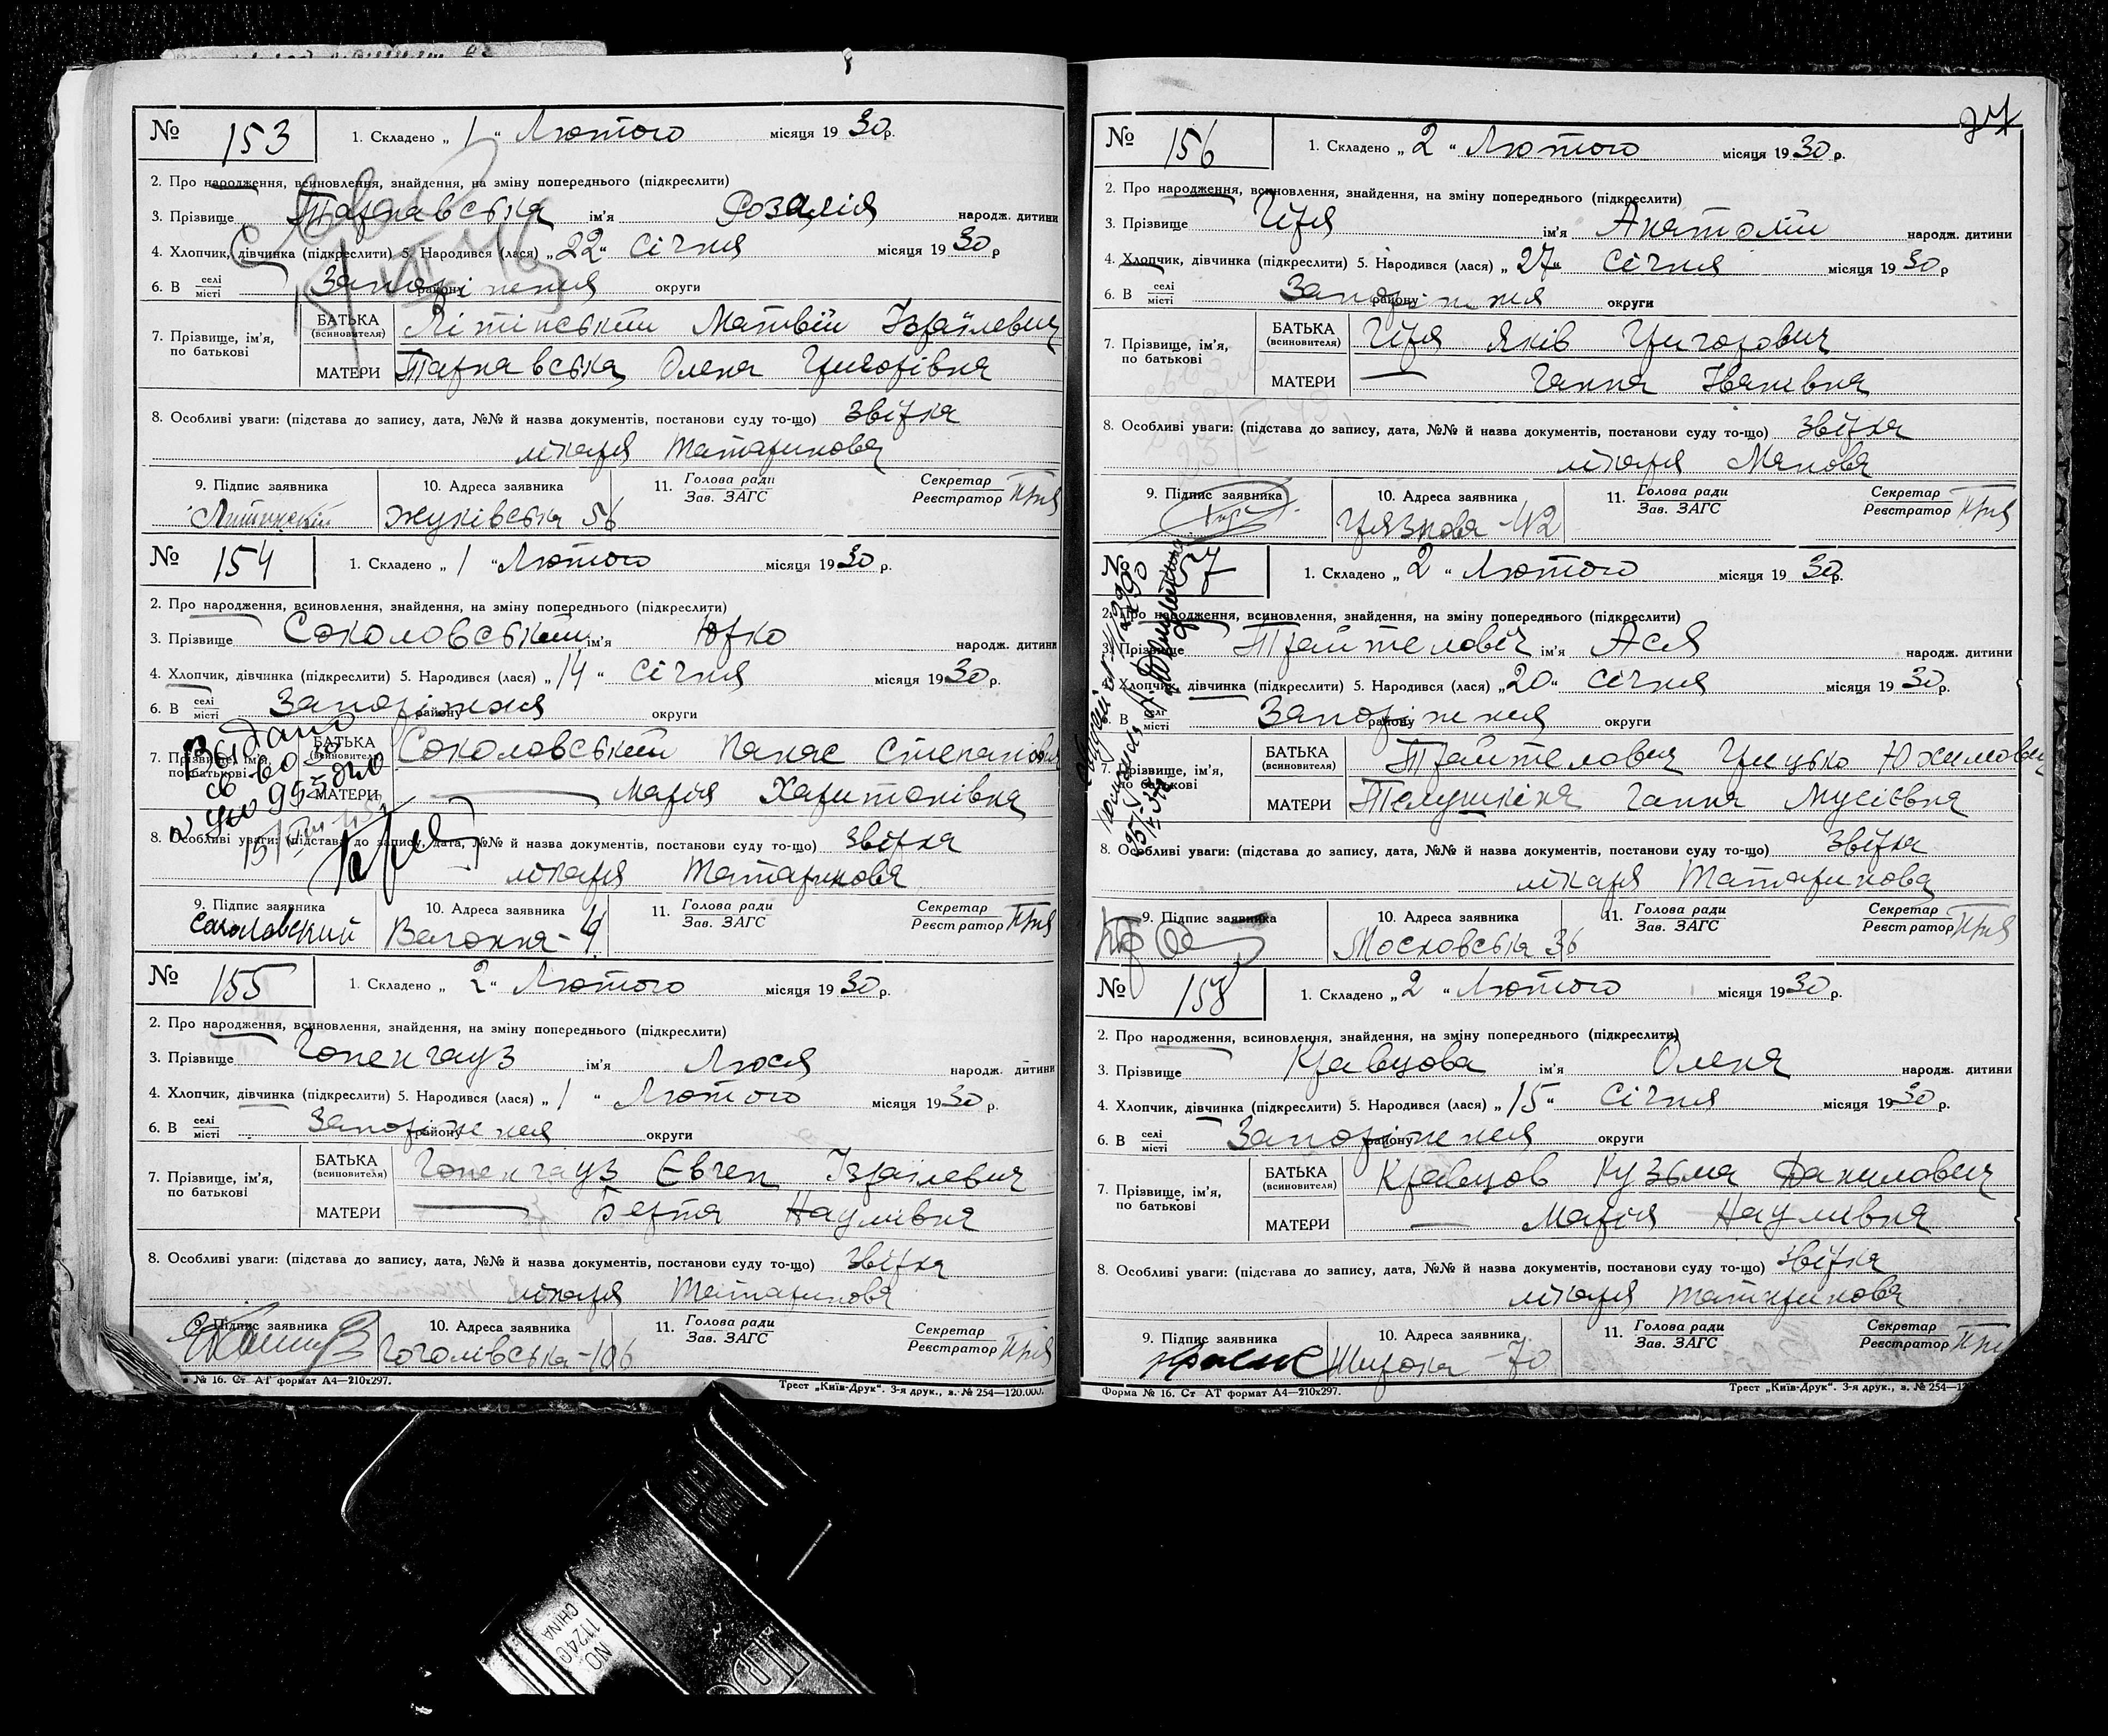 № 153 1. Складено „ 1 “ Лютого місяця 19 30 р.
2. Про народження, всиновлення, знайдення, на зміну попереднього (підкреслити)
3. Прізвище Тарнавська ім'я Розалія народж. дитини
4. Хлопчик, дівчинка (підкреслити) 5. Народився (лася) „ 22 “ Січня місяця 19 30 р
6. В селі місті Запоріжжя району округи
7. Прізвище, ім'я, по батькові БАТЬКА (всиновителя) Літінський Матвій Ізраїлевич
МАТЕРИ Тарнавська Олена Григорівна
8. Особливі уваги: (підстава до запису, дата, №№ й назва документів, постанови суду то-що) Звістка
лікаря Татаринова
9. Підпис заявника 10. Адреса заявника 11. Голова ради Зав. ЗАГС Секретар Реєстратор
Жуківська 56
№ 154 1. Складено „ 1 “ Лютого місяця 19 30 р.
2. Про народження, всиновлення, знайдення, на зміну попереднього (підкреслити)
3. Прізвище Соколовський ім'я Юрко народж. дитини
4. Хлопчик, дівчинка (підкреслити) 5. Народився (лася) „ 14 “ Січня місяця 19 30 р.
6. В селі місті Запоріжжя району округи
7. Прізвище, ім'я, по батькові БАТЬКА (всиновителя) Соколовський Панас Степанович
МАТЕРИ — Марія Харитонівна
8. Особливі уваги: (підстава до запису, дата, №№ й назва документів, постанови суду то-що) Звістка
лікаря Татаринова
9. Підпис заявника 10. Адреса заявника 11. Голова ради Зав. ЗАГС Секретар Реєстратор
Соколовский
№ 155 1. Складено „ 2 “ Лютого місяця 19 30 р.
2. Про народження, всиновлення, знайдення, на зміну попереднього (підкреслити)
3. Прізвище Гопенгауз ім'я Люся народж. дитини
4. Хлопчик, дівчинка (підкреслити) 5. Народився (лася) „ 1 “ Лютого місяця 19 30 р.
6. В селі місті Запоріжжя району округи
7. Прізвище, ім'я, по батькові БАТЬКА (всиновителя) Гопенгауз Євген Ізраїлевич
МАТЕРИ — Берта Наумівна
8. Особливі уваги: (підстава до запису, дата, №№ й назва документів, постанови суду то-що) Звістка
лікаря Татаринова
9. Підпис заявника 10. Адреса заявника 11. Голова ради Зав. ЗАГС Секретар Реєстратор
Гоголівська-106
№ 16. Ст АТ формат А4—210х297. Трест „Київ-Друк“. 3-я друк., з. № 254—120.000.
№ 156 1. Складено „ 2 “ Лютого місяця 19 30 р.
2. Про народження, всиновлення, знайдення, на зміну попереднього (підкреслити)
3. Прізвище ім'я Анатолій народж. дитини
4. Хлопчик, дівчинка (підкреслити) 5. Народився (лася) „ 27 “ Січня місяця 19 30 р
6. В селі місті Запоріжжя району округи
7. Прізвище, ім'я, по батькові БАТЬКА (всиновителя) Яків Григорович
МАТЕРИ — Ганна Іванівна
8. Особливі уваги: (підстава до запису, дата, №№ й назва документів, постанови суду то-що) Звістка
лікаря
9. Підпис заявника 10. Адреса заявника 11. Голова ради Зав. ЗАГС Секретар Реєстратор
Грязнова-42
№ 157 1. Складено „ 2 “ Лютого місяця 19 30 р.
2. Про народження, всиновлення, знайдення, на зміну попереднього (підкреслити)
3. Прізвище Трайтелович ім'я Ася народж. дитини
4. Хлопчик, дівчинка (підкреслити) 5. Народився (лася) „ 20 “ Січня місяця 19 30 р.
6. В селі місті Запоріжжя району округи
7. Прізвище, ім'я, по батькові БАТЬКА (всиновителя) Трайтелович Грицько Юхимович
МАТЕРИ Телушкіна Ганна Мусіївна
8. Особливі уваги: (підстава до запису, дата, №№ й назва документів, постанови суду то-що) Звістка
лікаря Татаринова
9. Підпис заявника 10. Адреса заявника 11. Голова ради Зав. ЗАГС Секретар Реєстратор
Московська 36
№ 158 1. Складено „ 2 “ Лютого місяця 19 30 р.
2. Про народження, всиновлення, знайдення, на зміну попереднього (підкреслити)
3. Прізвище Кравцова ім'я Олена народж. дитини
4. Хлопчик, дівчинка (підкреслити) 5. Народився (лася) „ 15 “ Січня місяця 19 30 р.
6. В селі місті Запоріжжя району округи
7. Прізвище, ім'я, по батькові БАТЬКА (всиновителя) Кравцов Кузьма Данилович
МАТЕРИ — Марія Наумівна
8. Особливі уваги: (підстава до запису, дата, №№ й назва документів, постанови суду то-що) Звістка
лікаря Татаринова
9. Підпис заявника 10. Адреса заявника 11. Голова ради Зав. ЗАГС Секретар Реєстратор
Широка-70
Форма № 16. Ст АТ формат А4—210х297. Трест „Київ-Друк“. 3-я друк., з. № 254—
NO 1124C
CHINA